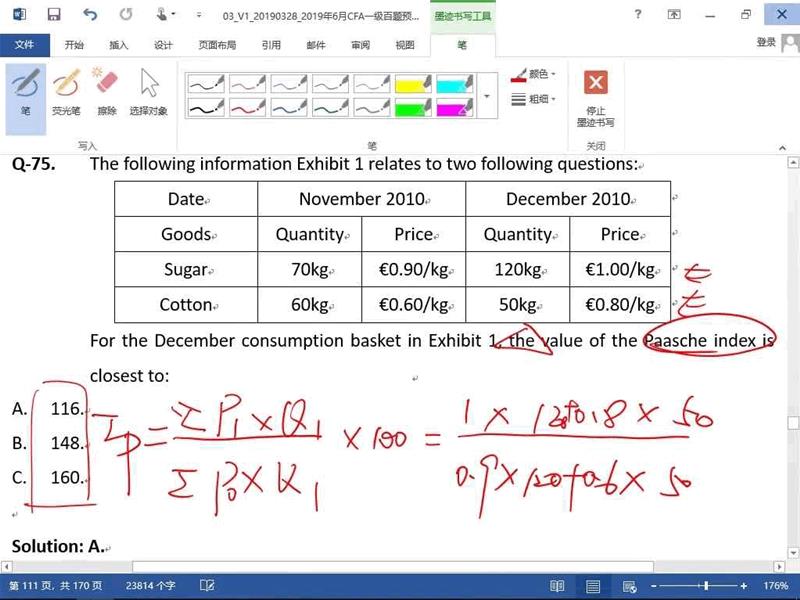 03_V1_20190328_2019年6月CFA一级百题预...
墨迹书写工具
文件
开始
插入
设计
页面布局
引用
邮件
审阅
视图
笔
登录
笔
荧光笔
擦除
选择对象
颜色
粗细
停止
墨迹书写
写入
笔
关闭
Q-75. The following information Exhibit 1 relates to two following questions:
Date November 2010 December 2010
Goods Quantity Price Quantity Price
Sugar 70kg €0.90/kg 120kg €1.00/kg
Cotton 60kg €0.60/kg 50kg €0.80/kg
For the December consumption basket in Exhibit 1, the value of the Paasche index is
closest to:
A. 116.
B. 148.
C. 160.
Ip = ΣP₁×Q₁ / ΣP₀×Q₁ × 100 = 1×120+0.8×50 / 0.9×120+0.6×50
Solution: A.
第 111 页，共 170 页
23814 个字
176%